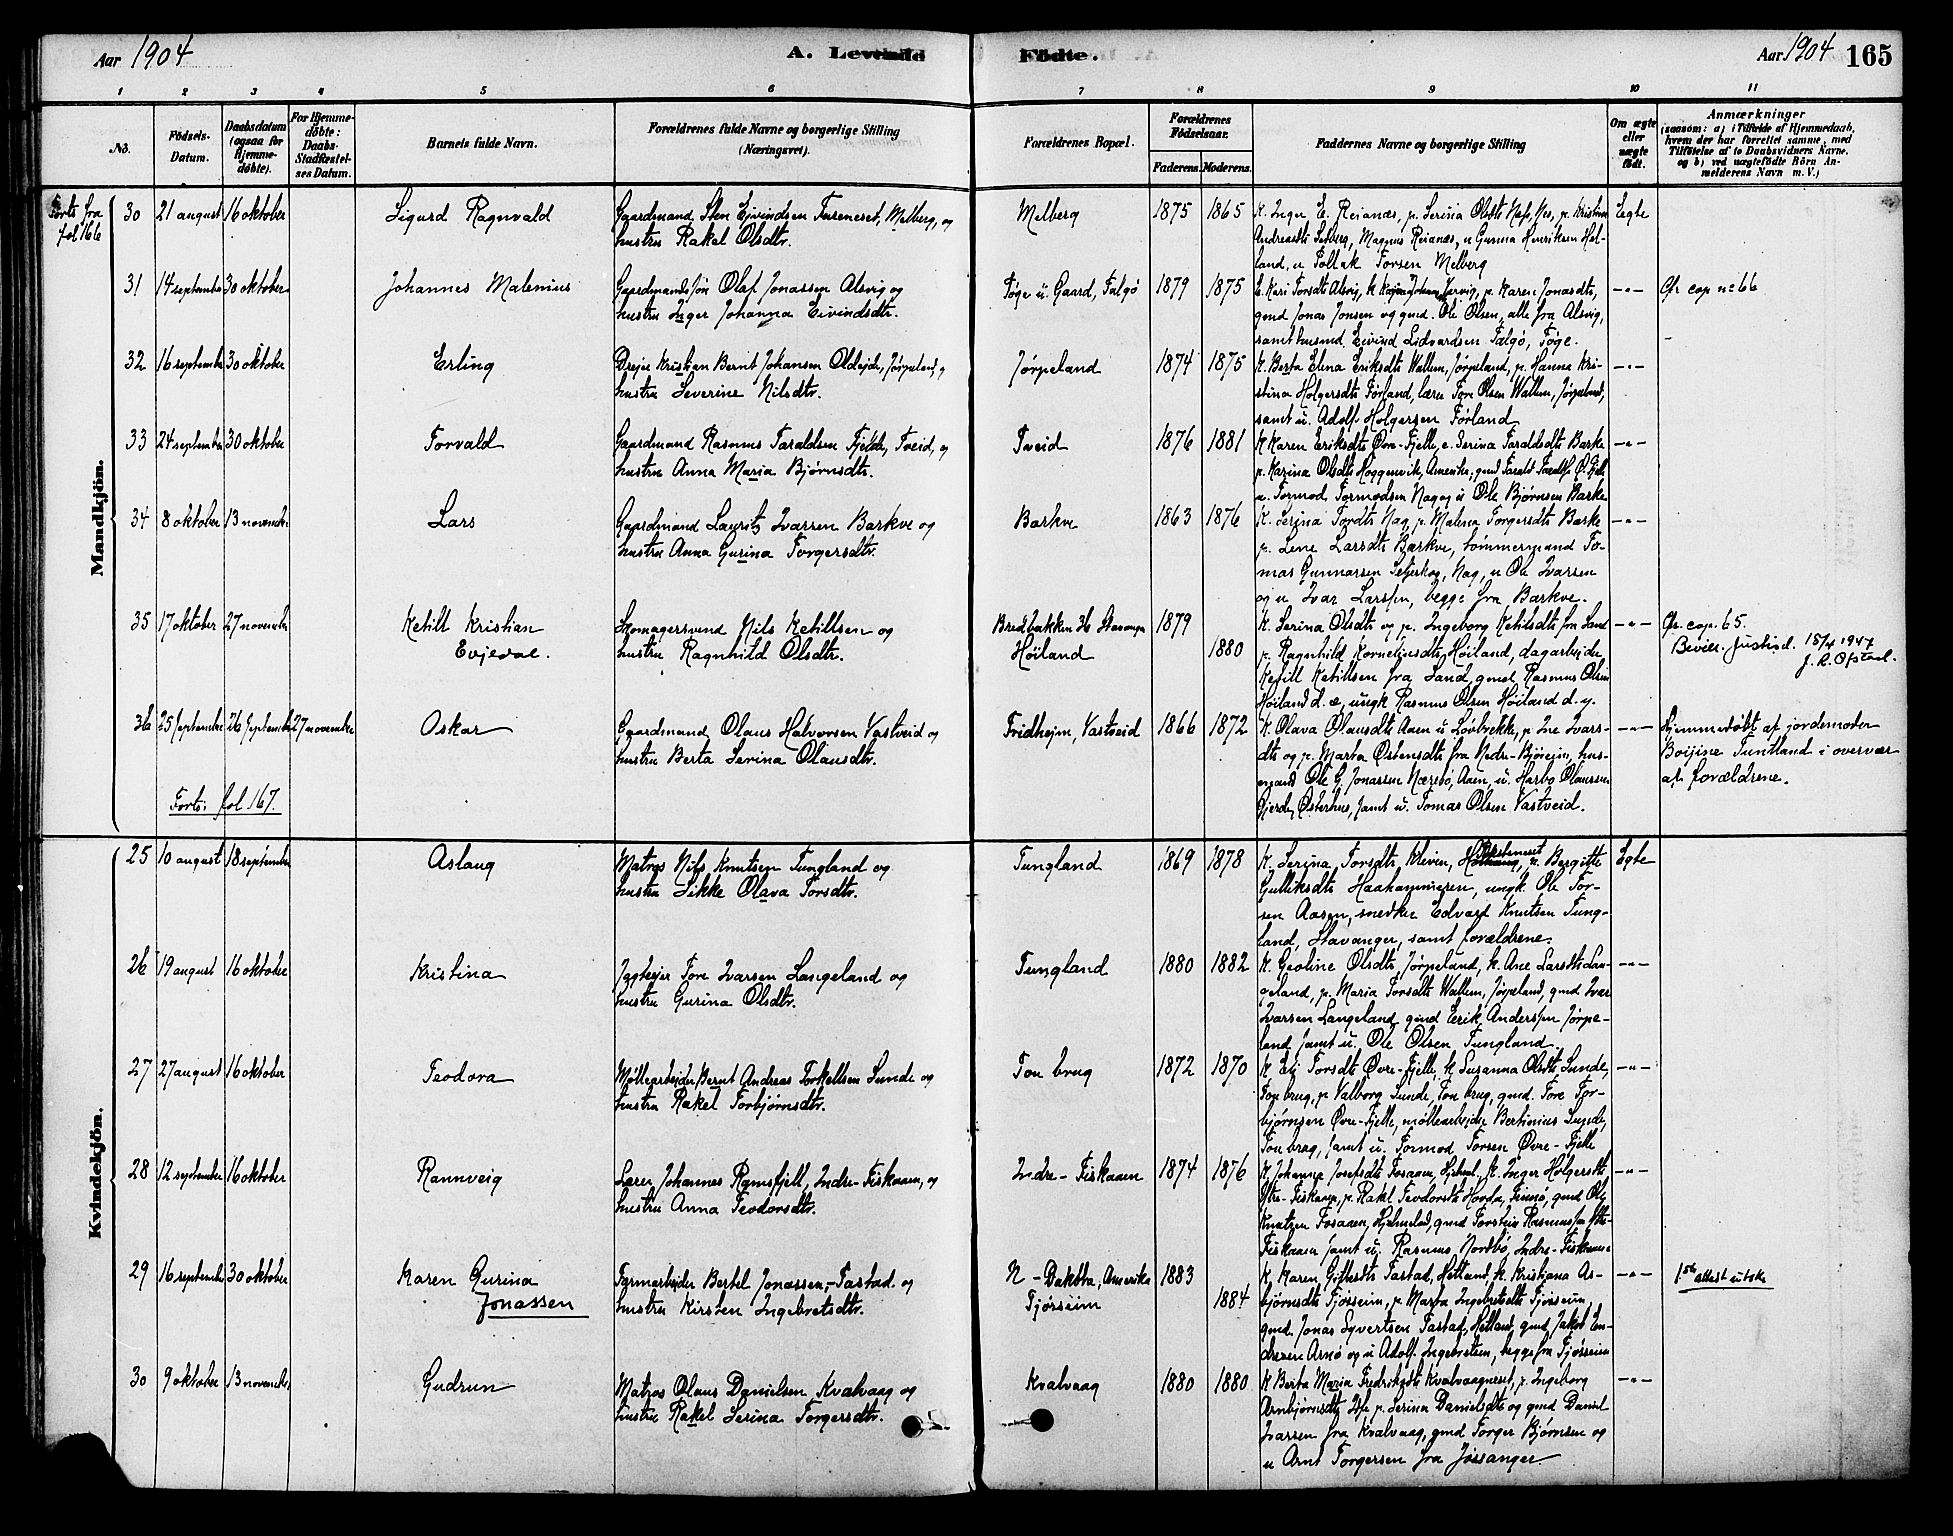 Aar 1904
A. Levende
Födte.
Aar 1904
165
1 2 3 4 5 6 7 8 9 10 11
No.
Födsels-
Datum.
Daabsdatum
(ogsaa for
Hjemme-
döbte).
For Hjemme-
döbte:
Daabs-
Stadfæstel-
ses Datum.
Barnets fulde Navn.
Forældrenes fulde Navne og borgerlige Stilling
(Næringsvei).
Forældrenes Bopæl.
Forældrenes
Födselsaar.
Faderens. Moderens.
Faddernes Navne og borgerlige Stilling
Om ægte
eller
uægte
födt.
Anmærkninger
(saasom: a) i Tilfælde af Hjemmedaab,
hvem der har forrettet samme, med
Tilföielse af to Daabsvidners Navne.
og b) ved uægtefödte Börn An-
melderens Navn m. V.)
Forts fra
fol 166
Mandkjön.
30 21 august 16 oktober
Sigurd Ragnvald
Gaardmand Sten Eivindsen Melberg, og
hustru Rakel Olsdtr.
Melberg
1875 1865
K. Inger E. Reianæs, p. Serina Olsdtr Næs, p. Kristine
Andreasdtr Magnus Reianæs, u Gunna Henriksen Hel-
land, u Tollak Torsen Melberg
Egte
31 14 september 30 oktober
Johannes Malenius
Gaardmandssön Olaf Jonassen Alsvig og
hustru Inger Johanna Eivindsdtr.
Töge u. Gaard, Talgö
1879 1875
E. Kari Torsdtr Alsvig, p. Karen Jonasdtr,
gmd Jonas Jonsen og gmd. Ole Olsen, alle fra Alsvig,
samt husmd. Eivind Lidvardsen Talgö, Töge.
—"—
Cfr cop no 66
32 16 september 30 oktober
Erling
Dreier Kristian Bernt Johansen Jørpeland, og
hustru Severine Nilsdtr.
Jørpeland
1874 1875
K. Berta Elena Eriksdtr Wallem, Jørpeland, p. Hanna Kri-
stina Holgersdtr Førland, lærer Tore Olsen Wallem, Jørpeland,
samt u. Adolf Holgersen Førland
—"—
33 24 september 30 oktober
Torvald
Gaardmand Rasmus Taraldsen Fjelde, Tveid, og
hustru Anna Maria Bjørnsdtr.
Tveid
1876 1881
K Karen Eriksdtr Øvre-Fjelle, e. Serina Taraldsdtr Barke
p. Karina Olsdtr Hoggenvik, Amerika, gmd Tarald
u. Tormod Tormodsen Nag og u Ole Bjørnsen Barke
—"—
34 8 oktober 13 novembr
Lars
Gaardmand Laurits Ivarsen Barkve og
hustru Anna Gurina Torgersdtr.
Barkve
1863 1876
K. Serina Tordtr Nag, p. Malena Torgersdtr Barke
p. Lene Larsdtr Barkve, tømmermand To-
mas Gunnarsen Nag, u Ole Ivarsen
og u Ivar Larssen, begge fra Barkve.
—"—
35 17 oktober 27 novembr
Ketill Kristian
Evjedal.
Skomagersvend Nils Ketillsen og
hustru Ragnhild Olsdtr.
Bredbakken 36 Stavanger
Høiland
1879
1880
K. Serina Olsdtr og p. Ingeborg Ketilsdtr fra Sand
p. Ragnhild Kornelinsdtr, Høiland, dagarbeider
Ketill Ketillsen fra Sand, gmd Rasmus Olsen
Høiland d. æ, ungk Rasmus Olsen Høiland d. y.
—"—
Cfr. cop. 65.
Bevill. Justisd. 15/4 1947
J. R. Ofstad.
36 25 September 26 September 27 novembr
Oskar
Gaardmand Olaus Halvorsen Vastveid og
hustru Berta Serina Olausdtr.
Fridheim, Vastveid
1866 1872
K. Olava Olausdtr Aaen u Løvbrekke, p Ine Ivars-
dtr og p. Marta Østensdtr fra Nedre-Björeim, hus-
mand Ole G. Jonassen Næsebö, Aaen, u. Harbo Olaussen
Gjerde, Østerhus, samt u. Tomas Olsen Vastveid.
—"—
Hjemmedöbt af jordemoder
Tuntland i overvær
af forældrene.
Forts: fol 167.
Kvindekjön.
25 10 august 18 september
Aslaug
Matros Nils Knutsen Tungland og
hustru Sikke Olava Torsdtr.
Tungland
1869 1878
K. Serina Torsdtr Kleven, p. Bergitte
Gulliksdtr Haahammeren, ungk. Ole Tor-
sen Aasen, snedker Edvard Knutsen Tung-
land, Stavanger, samt forældrene.
Egte
26 19 august 16 oktober
Kristina
Tore Ivarsen Langeland og
hustru Gurina Olsdtr.
Tungland
1880 1882
K. Geoline Olsdtr, Jørpeland, k. Ane Larsdtr Lan-
geland, p. Maria Torsdtr Wallem, Jørpeland, gmd Ivar
Ivarsen Langeland gmd Erik Anderssen Jørpe-
land samt u. Ole Olsen Tungland
—"—
27 27 august 16 oktober
Teodora
Møllearbeider Bernt Andreas Torkellsen Sunde og
hustru Rakel Torbjørnsdtr.
Tou brug
1872 1870
K Torsdtr Øvre-Fjelle, k Susanna Olsdtr Sunde,
Tou brug, p Valborg Sunde, Tou brug, gmd. Tore Tor-
bjørnsen Øvre-Fjelle, møllearbeider Bertinius Sunde,
Tou brug, samt u. Tormod Torsen Øvre-Fjelle
—"—
28 12 september 16 oktober
Rannveig
Lærer Johannes Ramsfjell, Indre-Fiskaaen, og
hustru Anna Teodorsdtr.
Indre-Fiskaaen
1874 1876
K. Johanna Josefsdtr Fosaaen, Hjelmel, k. Inger Holgersdtr
Ytre-Fiskaaen, p. Rakel Teodorsdtr Horda, Finnö, gmd Ole
Knutsen Fosaaen, Hjelmeland, gmd Torstein Rasmussen Ytre-
Fiskaaen samt u. Rasmus Nordbö, Indre-Fiskaaen
—"—
29 16 september 30 oktober
Karen Gurina
Jonassen
Farmarbeider Bertel Jonassen, Tastad. og
hustru Kirsten Ingebretsdtr.
N-Dakota, Amerika
Tjøsseim
1883
1884
K. Karen Tastad, Hetland, k. Kristiana As-
bjørnsdtr Tjøsseim, p. Marta Ingebretsdtr Tjøsseim,
gmd. Jonas Syvertsen Tastad, Hetland, gmd Jakob En-
dresen Arnö og u Adolf Ingebretsen, begge fra Tjøsseim
—"—
attest utste
30 9 oktober 13 novembr.
Gudrun
Matros Olaus Danielsen Kvalvaag og
hustru Rakel Serina Torgersdtr.
Kvalvaag
1880 1880
K Berta Maria Fredriksdtr Kvalvaagneset, p. Ingeborg
Arnbjørnsdtr p. Serina Danielsdtr og gmd Daniel
Ivarsen fra Kvalvaag, gmd Torger Bjørnsen og
u Arnt Torgersen fra Jøssanger
—"—